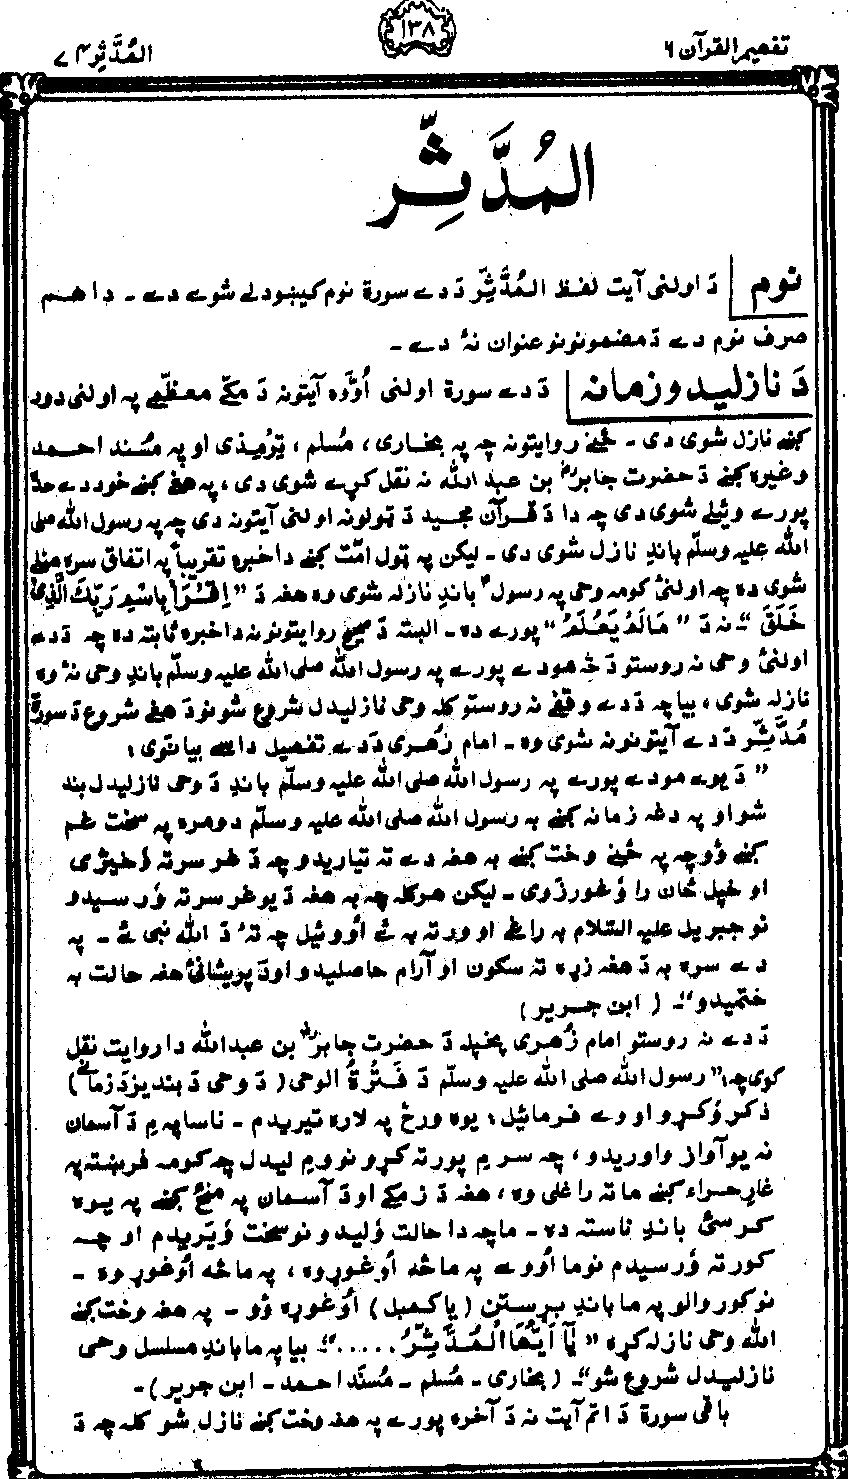 تفهيم القرآن ٦
١٣٨
المُدَّثِّر ٧٤
المُدَّثِّر
نوم
دَ اولنی آیت لفظ المُدَّثِّر دَ دے سورة نوم کیښودلے شوے دے ۔ دا هم
صرف نوم دے دَ مضمونونو عنوان نۀ دے ۔
دَ نازلیدو زمانه
دَ دے سورة اولنی اُوَّوه آیتونه دَ مکّے معظّمے په اولنی دور
کښے نازل شوی دی ۔ ځنے روایتونه چه په بخاری، مُسلم، تِرمِذی او په مُسند احمد
وغیره کښے دَ حضرت جابرؓ بن عبد الله نه نقل کړے شوی دی، په هغے کښے خو دے حدّ
پورے وئیلے شوی دی چه دا دَ قرآن مجید دَ ټولونه اولنی آیتونه دی چه په رسول الله صلی
الله علیه وسلّم باندِ نازل شوی دی ۔ لیکن په ټول امّت کښے دا خبره تقریباً په اتفاق سره منلے
شوی ده چه اولنیٔ کومه وحی په رسولؐ باندِ نازله شوی وه هغه دَ ”اِقْرَأْ بِاسْمِ رَبِّكَ الَّذِیْ
خَلَقَ“ ۔ نه دَ ”مَالَمْ یَعْلَمْ“ پورے ده ۔ البته دَ صحیح روایتونو نه دا خبره ثابته ده چه دَ دے
اولنیٔ وحی نه روستو دَ څه مودے پورے په رسول الله صلی الله علیه وسلّم باندِ وحی نۀ وه
نازله شوی، بیا چه دَ دے وقفے نه روستو کله وحی نازلیدل شروع شو نو دَ هغے شروع دَ سورة
مُدَّثِّر دَ دے آیتونو نه شوی وه ۔ امام زُهری دَ دے تفصیل داسے بیانوی :
”دَ یوے مودے پورے په رسول الله صلی الله علیه وسلّم باندِ دَ وحی نازلیدل بند
شو او په دغه زمانه کښے به رسول الله صلی الله علیه وسلّم دومره په سخت غم
کښے وُو چه په ځنے وخت کښے به هغه دے ته تیاریدو چه دَ غر سر ته وُخیژی
او خپل ځان را وُغورزوی ۔ لیکن هر کله چه به هغه دَ یو غر سر ته وُرسیدو
نو جبریل علیه السّلام به راغے او ورته به ئے اُووئیل چه تۀ دَ الله نبی ئے ۔ په
دے سره به دَ هغه زړه ته سکون او آرام حاصلیدو او دَ پریشانیٔ هغه حالت به
ختمیدو“ ۔ (ابن جریر)
دَ دے نه روستو امام زُهری پخپله دَ حضرت جابرؓ بن عبد الله دا روایت نقل
کوی چه: ”رسول الله صلی الله علیه وسلّم دَ فَتْرَةُ الوحی (دَ وحی دَ بندیز دَ زمانے)
ذکر وُکړو او وے فرمائیل: یوه ورځ په لاره تیریدم ۔ ناساپه مِ دَ آسمان
نه یو آواز واوریدو، چه سر مِ پورته کړو نو ومِ لیدل چه کومه فرښته په
غارِ حراء کښے ما ته راغلی وه، هغه دَ زمکے او دَ آسمان په منځ کښے په یوه
کرسیٔ باندِ ناسته ده ۔ ما چه دا حالت وُلیدو نو سخت وُیریدم او چه
کور ته وُرسیدم نو ما اُووے په ما څه اُوغوړوه، په ما څه اُوغوړوه ۔
نو کور والو په ما باندِ بړستن (یا کمبل) اُوغوړه ؤو ۔ په هغه وخت کښے
الله وحی نازله کړه ”یٰٓاَ اَیُّهَا الْمُدَّثِّرُ......“ ۔ بیا په ما باندِ مسلسل وحی
نازلیدل شروع شو“ ۔ (بخاری ۔ مُسلم ۔ مُسنَد احمد ۔ ابن جریر) ۔
باقی سورة دَ اتم آیت نه دَ آخره پورے په هغه وخت کښے نازل شو کله چه دَ